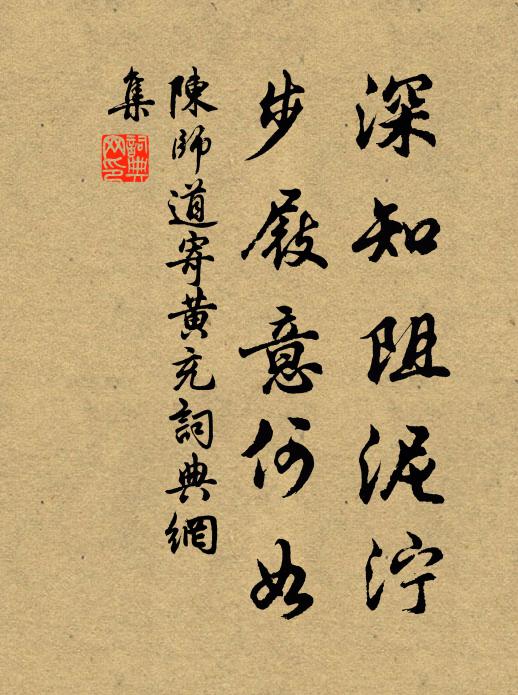 深知阻泥泞
步屐意何如
陳師道寄黄充詞典網
集
詞典网印